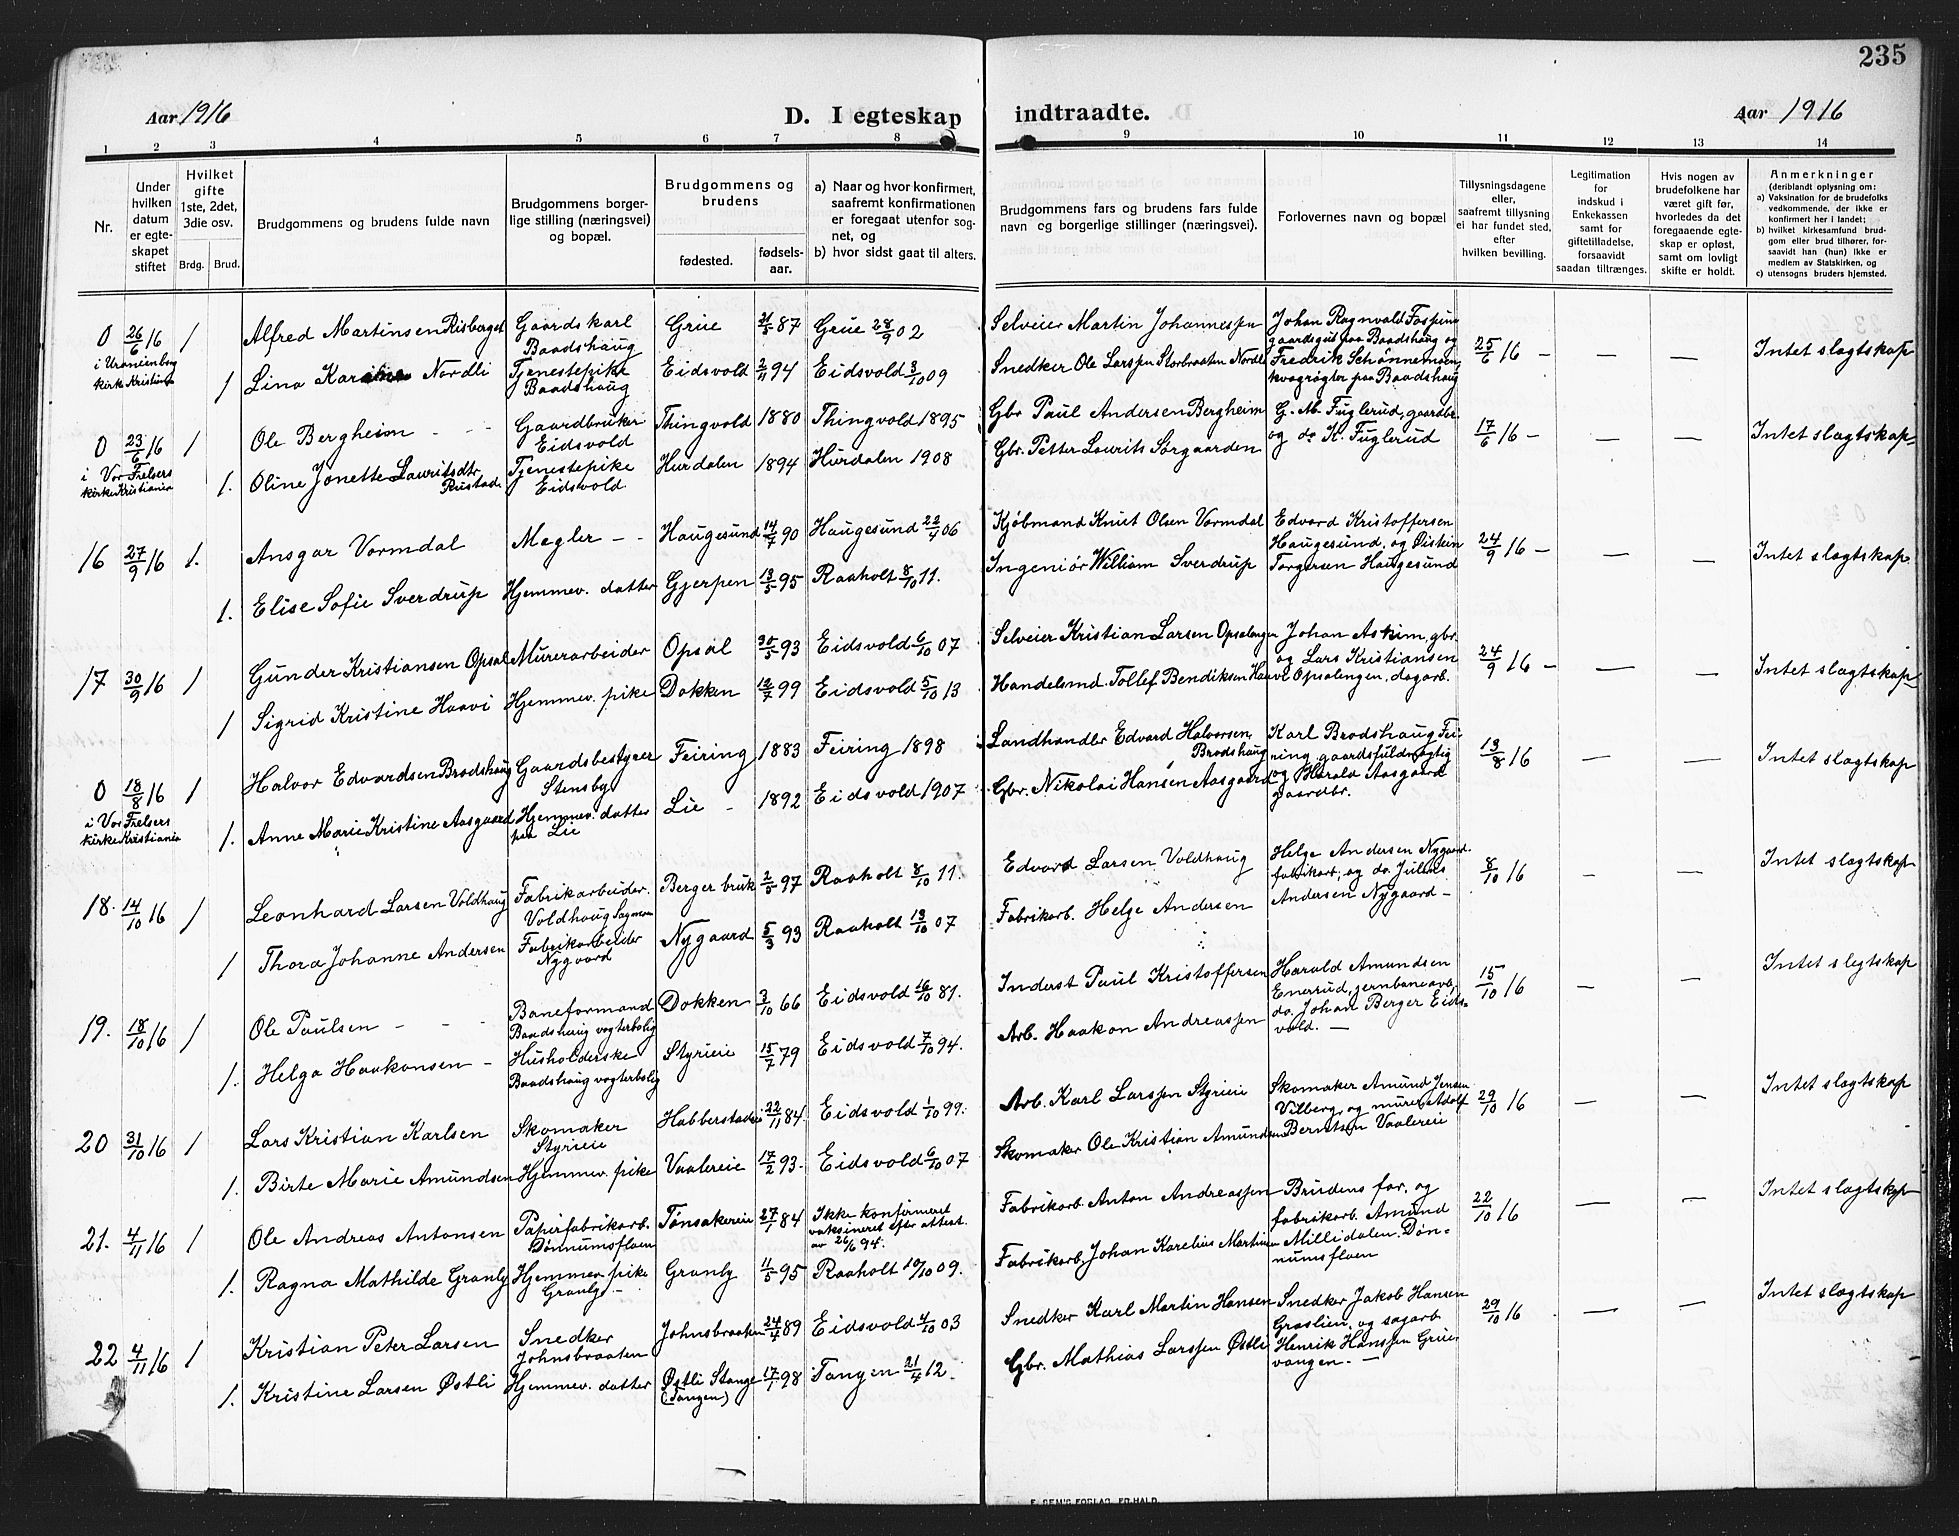 235
Aar 1916
D. I egteskap indtraadte.
Aar 1916
1 2 3 4 5 6 7 8 9 10 11 12 13 14
Nr.
Under hvilken datum er egteskapet stiftet
Hvilket gifte 1ste, 2det, 3die osv.
Brdg. Brud.
Brudgommens og brudens fulde navn
Brudgommens borgerlige stilling (næringsvei) og bopæl.
Brudgommens og brudens
fødested.
fødselsaar.
a) Naar og hvor konfirmert, saafremt konfirmationen er foregaat utenfor sognet, og
b) hvor sidst gaat til alters.
Brudgommens fars og brudens fars fulde navn og borgerlige stillinger (næringsvei).
Forlovernes navn og bopæl
Tillysningsdagene eller, saafremt tillysning ei har fundet sted, efter hvilken bevilling.
Legitimation for indskud i Enkekassen samt for giftetilladelse, forsaavidt saadan tiltrænges.
Hvis nogen av brudefolkene har været gift før, hvorledes da det foregaaende egteskap er opløst, samt om lovligt skifte er holdt.
Anmerkninger (deriblandt oplysning om: a) Vaksination for de brudefolks vedkommende, der ikke er konfirmert her i landet; b) hvilket kirkesamfund brudgom eller brud tilhører, forsaavidt han (hun) ikke er medlem av Statskirken, og c) utensogns bruders hjemsted.
0 26/6 16 1 Alfred Martinsen Risberget Gaardskarl Baadshaug Grue 21/5 87 Grue 28/9 02 Selveier Martin Johannessen Johan Ragnvald Fossum gaardsgut paa Baadshaug og 25/6 16 — — — Intet slægtskap
i Uranienborg kirke Kristiania 1 Lina Karine Nordli Tjenestepike Baadshaug Eidsvold 2/11 94 Eidsvold 3/10 09 Snedker Ole Larssen Storbraaten Nordli Fredrik Schønnemsen, kvægrøgter paa Baadshaug
0 23/6 16 1 Ole Bergheim Gaardbruker Eidsvold Thingvold 1880 Thingvold 1895 Gbr Paul Andersen Bergheim G. M. Fuglerud, gaardbr. 17/6 16 — — — Intet slægtskap
i Vor Frelsers kirke Kristiania 1. Oline Jonette Lauritsdtr. Rustad. Tjenestepike Eidsvold Hurdalen 1894 Hurdalen 1908 Gbr. Petter Laurits Sørgaarden og do K. Fuglerud
16 27/9 16 1. Ansgar Vormdal Megler Haugesund 14/7 90 Haugesund 22/4 06 Kjøbmand Knut Olsen Vormdal Edvard Kristoffersen Haugesund, og Øistein 24/9 16 — — — Intet slægtskap
1. Elise Sofie Sverdrup Hjemmev. datter Gjerpen 13/5 95 Raaholt 8/10 11. Ingeniør William Sverdrup Torgersen Haugesund
17 30/9 16 1 Gunder Kristiansen Opsal Murerarbeider Opsal 30/5 93 Eidsvold 6/10 07 Selveier Kristian Larsen Opsalengen Johan Askim, gbr. og Lars Kristiansen 24/9 16 — — — Intet slægtskap
1 Sigrid Kristine Haavi Hjemmev. pike Dokken 12/7 99 Eidsvold 5/10 13 Handelsmd. Tollef Bendiksen Haavi Opsalengen, dagarb.
0 18/8 16 1 Halvor Edvardsen Brodshaug Gaardsbestyrer Stensby Feiring 1883 Feiring 1898 Landhandler Edvard Halvorsen Brodshaug Karl Brodshaug Feiring gaardsfuldmægtig 13/8 16 — — Intet slægtskap
i Vor Frelsers kirke Kristiania 1. Anne Marie Kristine Aasgaard Hjemmev. datter paa Lie Lie 1892 Eidsvold 1907 Gbr. Nikolai Hansen Aasgaard og Harald Aasgaard gaardbr.
18. 14/10 16 1 Leonhard Larsen Voldhaug Fabrikarbeider. Voldhaug Berger bruk 2/5 97 Raaholt 8/10 11. Edvard Larsen Voldhaug Helge Andersen Nygaard fabrikarb, og do. Julius 8/10 16 — — Intet slægtskap
1 Thora Johanne Andersen Fabrikarbeider Nygaard Nygaard 5/3 93 Raaholt 13/10 07 Fabrikarb. Helge Andersen Andersen Nygaard —
19. 18/10 16 1 Ole Paulsen Baneformand Baadshaug vogterbolig Dokken 3/10 66 Eidsvold 16/10 81. Inderst Paul Kristoffersen Harald Amundsen Enerud, jernbanearb, 15/10 16 — — Intet slegtskap
1. Helga Haakonsen Husholderske Baadshaug vogterbolig Styrieie 15/7 79 Eidsvold 7/10 94. Arb. Haakon Andreassen do. Johan Berger Eidsvold. —
20 31/10 16 1 Lars Kristian Karlsen Skomaker Styrieie Habberstadeie 22/11 84 Eidsvold 1/10 99. Arb. Karl Larssen Styrieie Skomaker Amund Jensen Vilberg, og murer Adolf 29/10 16 — — Intet slægtskap
1. Birte Marie Amundsen Hjemmev. pike Vaalereie 17/2 93. Eidsvold 6/10 07 Skomaker Ole Kristian Amundsen Berntsen Vaalereie
21. 4/11 16 1 Ole Andreas Antonsen Papirfabrikarb. Dønnumsfloen Tønsakereie 27/1 84 Ikke konfirmeret vaksineret efter attest. av 26/6 94. Fabrikarb. Anton Andreassen Brudens far, og fabrikarb. Amund 22/10 16 — — Intet slægtskap
1. Ragna Mathilde Granly Hjemmev. pike Granly Granly 11/5 95 Raaholt 10/10 09. Fabrikarb Johan Karelius Martinsen Millidalen, Dønnumsfloen
22 4/11 16 1 Kristian Peter Larsen Snedker Johnsbraaten Johnsbraaten 24/4 89 Eidsvold 4/10 03 Snedker Karl Martin Hansen Snedker Jakob Hansen Graslien, og sagarb 29/10 16 — — Intet slægtskap
1. Kristine Larsen Østli Hjemmev. datter Østli Stange (Tangen) 17/1 98 Tangen 21/4 12. Gbr. Mathias Larssen Østli Henrik Hanssen Gruevangen. —